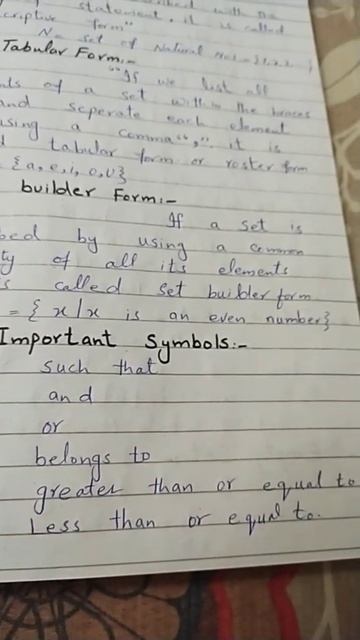 statement, it is called
criptive form"
N = set of Natural No: = {1,2,3, }
Tabular Form:-
"If we list all
nts of a set within the braces
and seperate each element
using a comma "," it is
tabular form or roster form
{a, e, i, o, u}
builder Form:-
If a set is
bed by using a common
ty of all its elements
s called set builder form
= { x / x is an even number}
Important Symbols:-
Such that
and
or
belongs to
greater than or equal to
Less than or equal to.